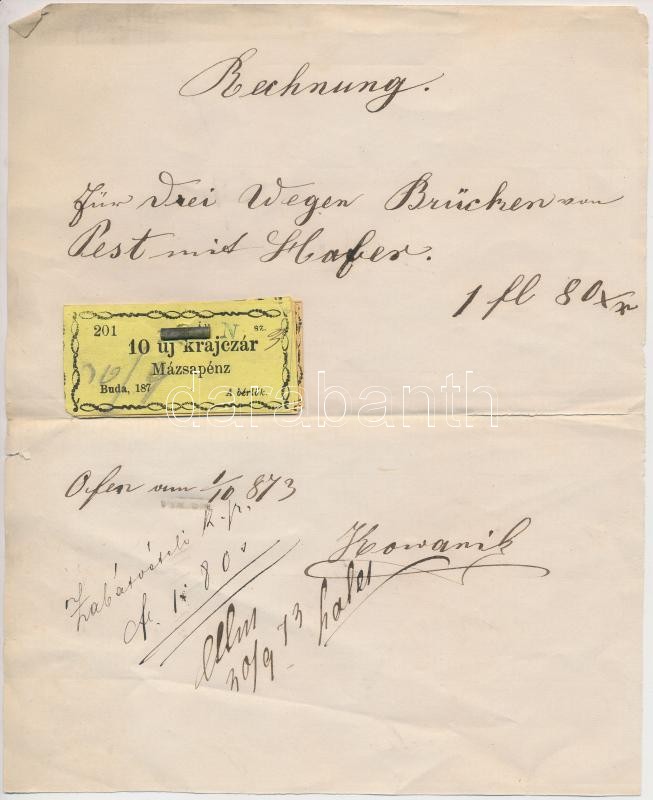 Rechnung.
für drei Wegen Brücken von
Pest mit Hafer.
1 fl 80 xr
201 N sz. 3
10 uj krajczár
Mázsapénz
30/9
Buda, 187 A bérlők.
darabanth
Ofen am 1/10 873
Kowanik
k. p.
fr. 1. 80
30/9 73